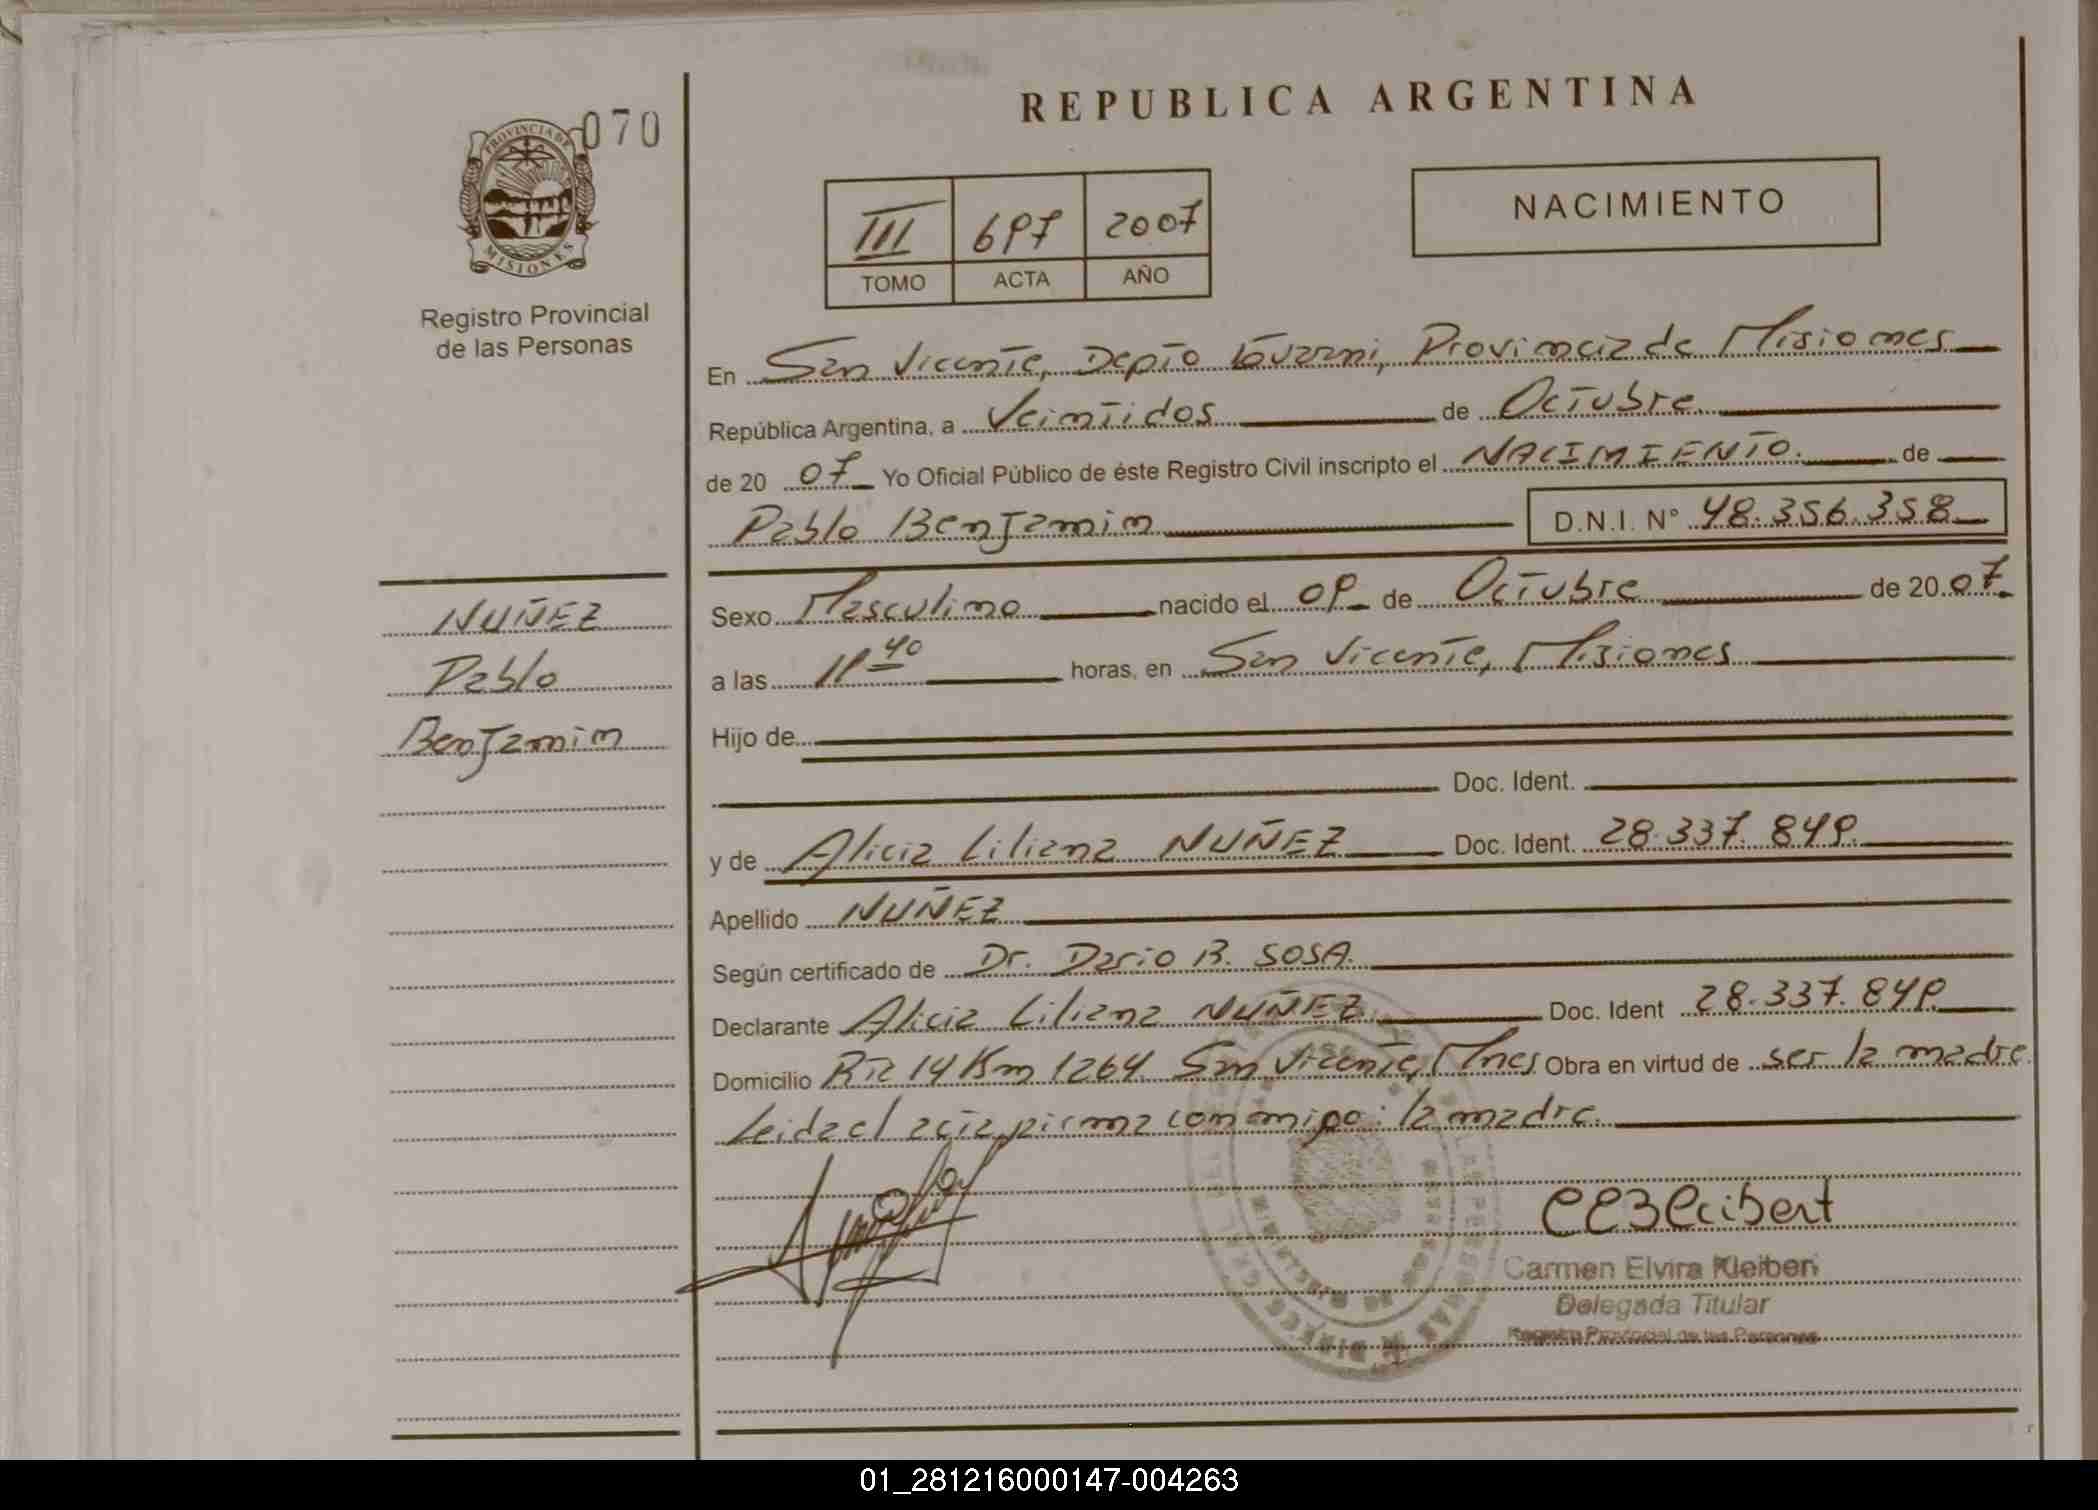 070
PROVINCIA DE
MISIONES
Registro Provincial
de las Personas
NUÑEZ
Pablo
Benjamin
REPUBLICA ARGENTINA
III 697 2007
TOMO ACTA AÑO
NACIMIENTO
En San Vicente, Depto Guarani, Provincia de Misiones
República Argentina, a Veintidos de Octubre
de 20 07 Yo Oficial Público de éste Registro Civil inscripto el NACIMIENTO. de
Pablo Benjamin D.N.I. N° 48.356.358
Sexo Masculino nacido el 09 de Octubre de 20 07.
a las 19 40 horas, en San Vicente, Misiones
Hijo de
Doc. Ident.
y de Alicia Liliana NUÑEZ Doc. Ident. 28.337.849.
Apellido NUÑEZ
Según certificado de Dr. Dario B. SOSA.
Declarante Alicia Liliana NUÑEZ Doc. Ident 28.337.849.
Domicilio Rta 14 Km 1264 San Vicente, Mnes Obra en virtud de ser la madre.
Leida el acta, firma conmigo: la madre.
Carmen Elvira Kleibert
Delegada Titular
Registro Provincial de las Personas
01_281216000147-004263